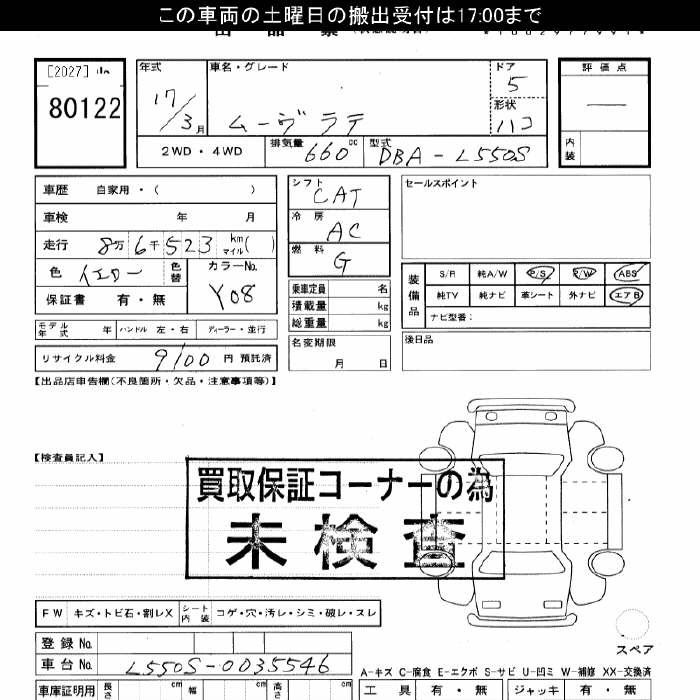 この車両の土曜日の搬出受付は17:00まで
[2027]
80122
年式 17/3月
車名・グレード ムーヴ ラテ
ドア 5
形状 ハコ
評価点 ―
内装
2WD・4WD
排気量 660cc
型式 DBA-L550S
車歴 自家用・( )
車検 年 月
走行 8万6千523 km マイル( )
色 イエロー 色替
カラーNo. Y08
保証書 有・無
シフト CAT
冷房 AC
燃料 G
乗車定員 名
積載量 kg
総重量 kg
セールスポイント
装備品
S/R 純A/W P/S P/W ABS
純TV 純ナビ 革シート 外ナビ エアB
ナビ型番:
モデル年式 年 ハンドル 左・右 ディーラー・並行
名変期限 月 日
後日品
リサイクル料金 9100 円 預託済
【出品店申告欄(不良箇所・欠品・注意事項等)】
【検査員記入】
買取保証コーナーの為
未検査
FW キズ・トビ石・割レX シート内装 コゲ・穴・汚レ・シミ・破レ・スレ
スペア
登録No.
車台No. L550S-0035546
A-キズ C-腐食 E-エクボ S-サビ U-凹ミ W-補修 XX-交換済
車庫証明用 長さ cm 幅 cm 高さ cm
工具 有・無 ジャッキ 有・無